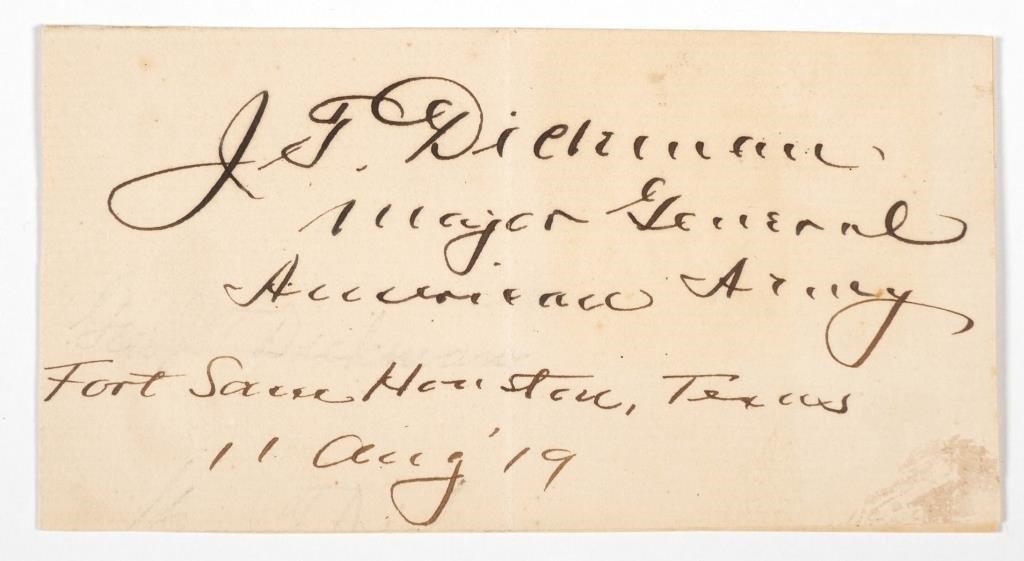 J. T. Dickman
Major General
American Army
Fort Sam Houston, Texas
11 Aug '19